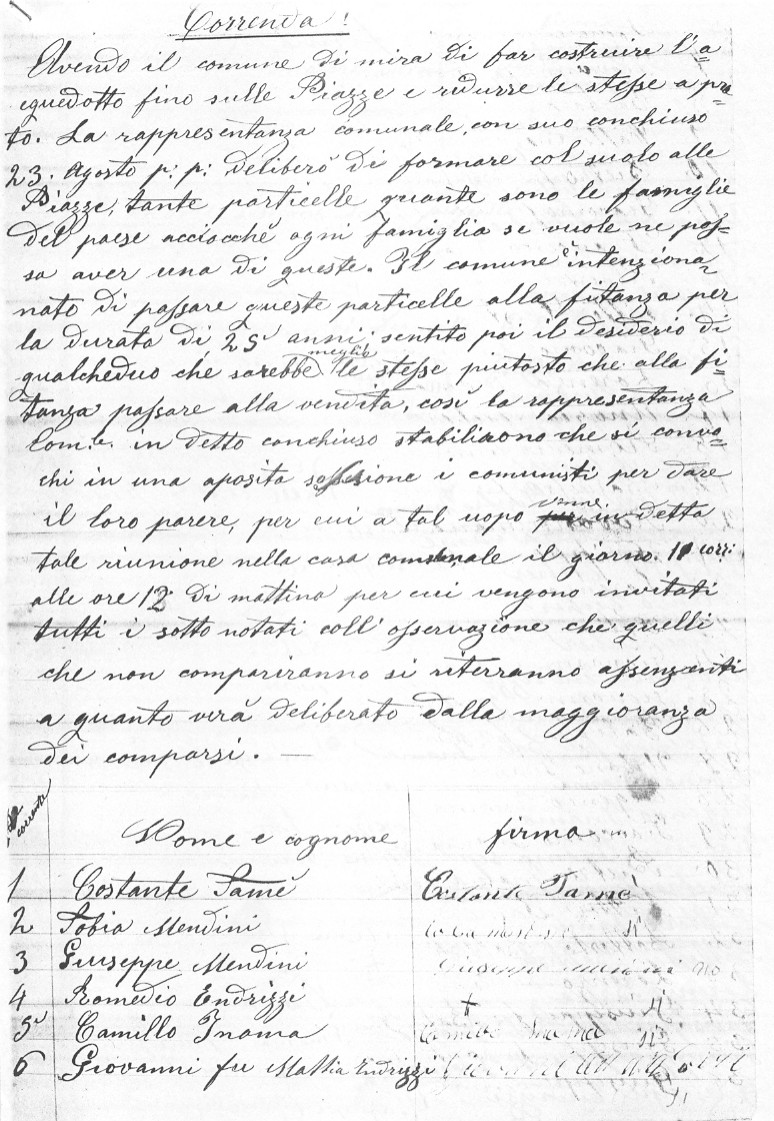 Correnda!
Avendo il comune di mira di far costruire l'a=
equedotto fino sulle Piazze e ridurre le stesse a pra=
to. La rappresentanza comunale, con suo conchiuso
23. Agosto p: p: deliberò di formare col suolo alle
Piazze, tante particelle quante sono le famiglie
del paese acciocché ogni famiglia se vuole ne pos=
sa aver una di queste. Il comune è intenziona=
nato di passare queste particelle alla fitanza per
la durata di 25 anni, sentito poi il desiderio di
qualcheduo che sarebbe meglio le stesse piutosto che alla fi=
tanza passare alla vendita, così la rappresentanza
Com.e. in detto conchiuso stabilirono che si convo=
chi in una aposita sessione i comunisti per dare
il loro parere, per cui a tal uopo venne indetta
tale riunione nella casa comunale il giorno 11 corr:
alle ore 12 di mattina per cui vengono invitati
tutti i sotto notati coll' osservazione che quelli
che non compariranno si riterranno assenzenti
a quanto verà deliberato dalla maggioranza
dei comparsi. —
corrente Nome e cognome firma
1 Costante Tamè Costante Tamè
2 Tobia Mendini si
3 Giuseppe Mendini Giuseppe no
4 Romedio Endrizzi + si
5 Camillo Inama Camillo Inama si
6 Giovanni fu Mattia Endrizzi
si